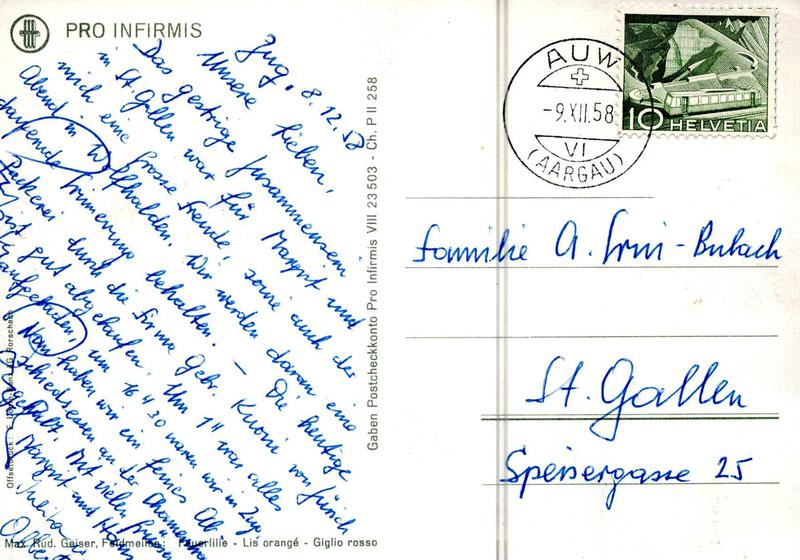 PRO INFIRMIS
Zug, 8.12.58
Unsere Lieben,
Das gestrige Zusammensein
in St. Gallen war für Margrit und
mich eine grosse Freude, sowie auch der
Abend in Wolfhalden. Wir werden daran eine
dauernde Erinnerung behalten. — Die heutige
Packerei durch die Firma Gebr. Kuoni von Zürich
ist gut abgelaufen. Um 11 war alles
aufgeladen um 16 30 waren wir in Zug
Nun haben wir ein feines
Abschiedsessen an der
Mit vielen Grüssen
Margrit und
Gaben Postcheckkonto Pro Infirmis VIII 23 503 - Ch. P II 258
Offsetdruck: E. AG. Rorschach
Max Rud. Geiser, Feldmeilen: Feuerlilie - Lis orangé - Giglio rosso
AUW
-9.XII.58
VI
(AARGAU)
10 HELVETIA
Familie A. - Bubach
St. Gallen
Speisergasse 25